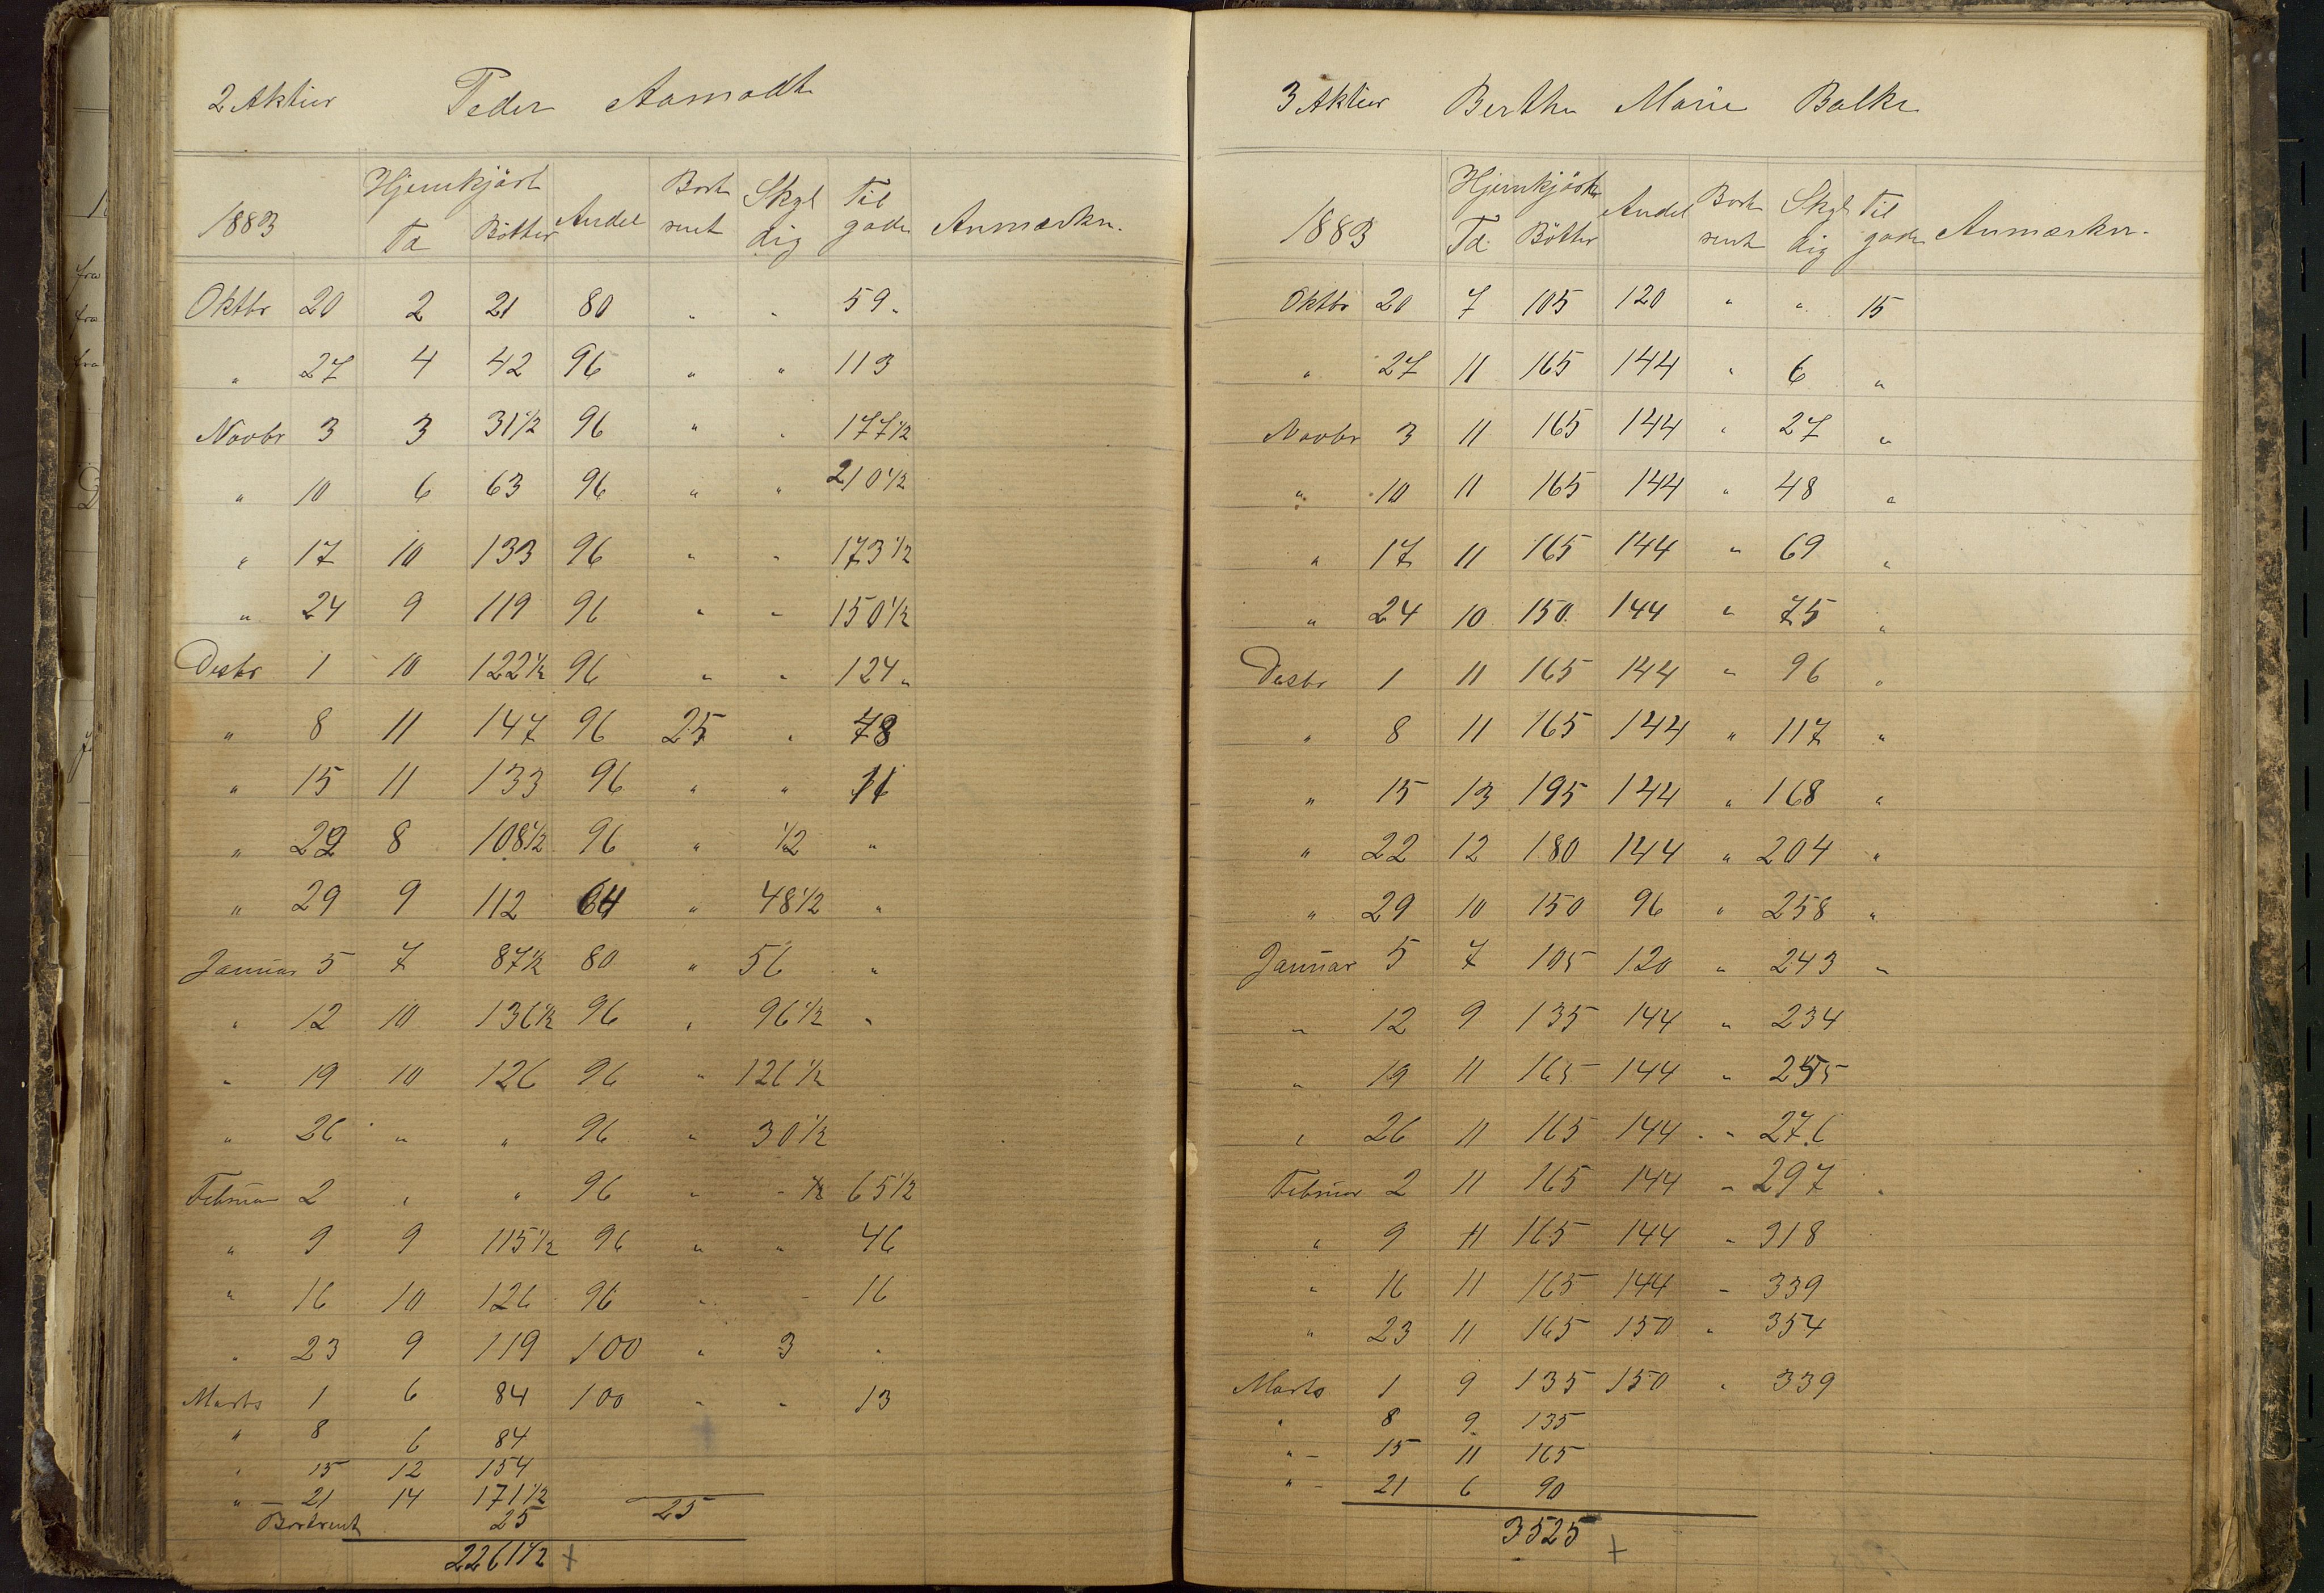 2 Aktier Peder Aamodt
Hjemkjört Bort Skyl Til
1883 Td Bötter Andel rent dig gode Anmærkn.
Oktbr 20 2 21 80 " " 59 "
" 27 4 42 96 " " 113
Novbr 3 3 31 1/2 96 " " 177 1/2
" 10 6 63 96 " " 210 1/2
" 17 10 133 96 " " 173 1/2
" 24 9 119 96 " " 150 1/2
Desbr 1 10 122 1/2 96 " " 124 "
" 8 11 147 96 25 " 48
" 15 11 133 96 " " 11
" 22 8 108 1/2 96 " 1/2 "
" 29 9 112 64 " 48 1/2 "
Januar 5 7 87 1/2 80 " 56 "
" 12 10 136 1/2 96 " 96 1/2 "
" 19 10 126 96 " 126 1/2
" 26 " " 96 " 30 1/2
Februar 2 " " 96 " " 65 1/2
" 9 9 115 1/2 96 " " 46
" 16 10 126 96 " " 16
" 23 9 119 100 " 3 "
Marts 1 6 84 100 " " 13
" 8 6 84
" 15 12 154
" 21 14 171 1/2
Bortrent 25 25
2261 1/2 +
3 Aktier Berthe Marie Balke
Hjemkjört Bort Skyl Til
1883 Td. Bötter Andel rent dig gode Anmærkn.
Oktbr 20 7 105 120 " " 15
" 27 11 165 144 " 6 "
Novbr 3 11 165 144 " 27 "
" 10 11 165 144 " 48 "
" 17 11 165 144 " 69 "
" 24 10 150 144 " 75 "
Desbr 1 11 165 144 " 96 "
" 8 11 165 144 " 117 "
" 15 13 195 144 " 168 "
" 22 12 180 144 " 204 "
" 29 10 150 96 " 258 "
Januar 5 7 105 120 " 243 "
" 12 9 135 144 " 234
" 19 11 165 144 " 255
" 26 11 165 144 " 276
Februar 2 11 165 144 " 297 "
" 9 11 165 144 " 318
" 16 11 165 144 " 339
" 23 11 165 150 " 354
Marts 1 9 135 150 " 339
" 8 9 135
" 15 11 165
" 21 6 90
3525 +